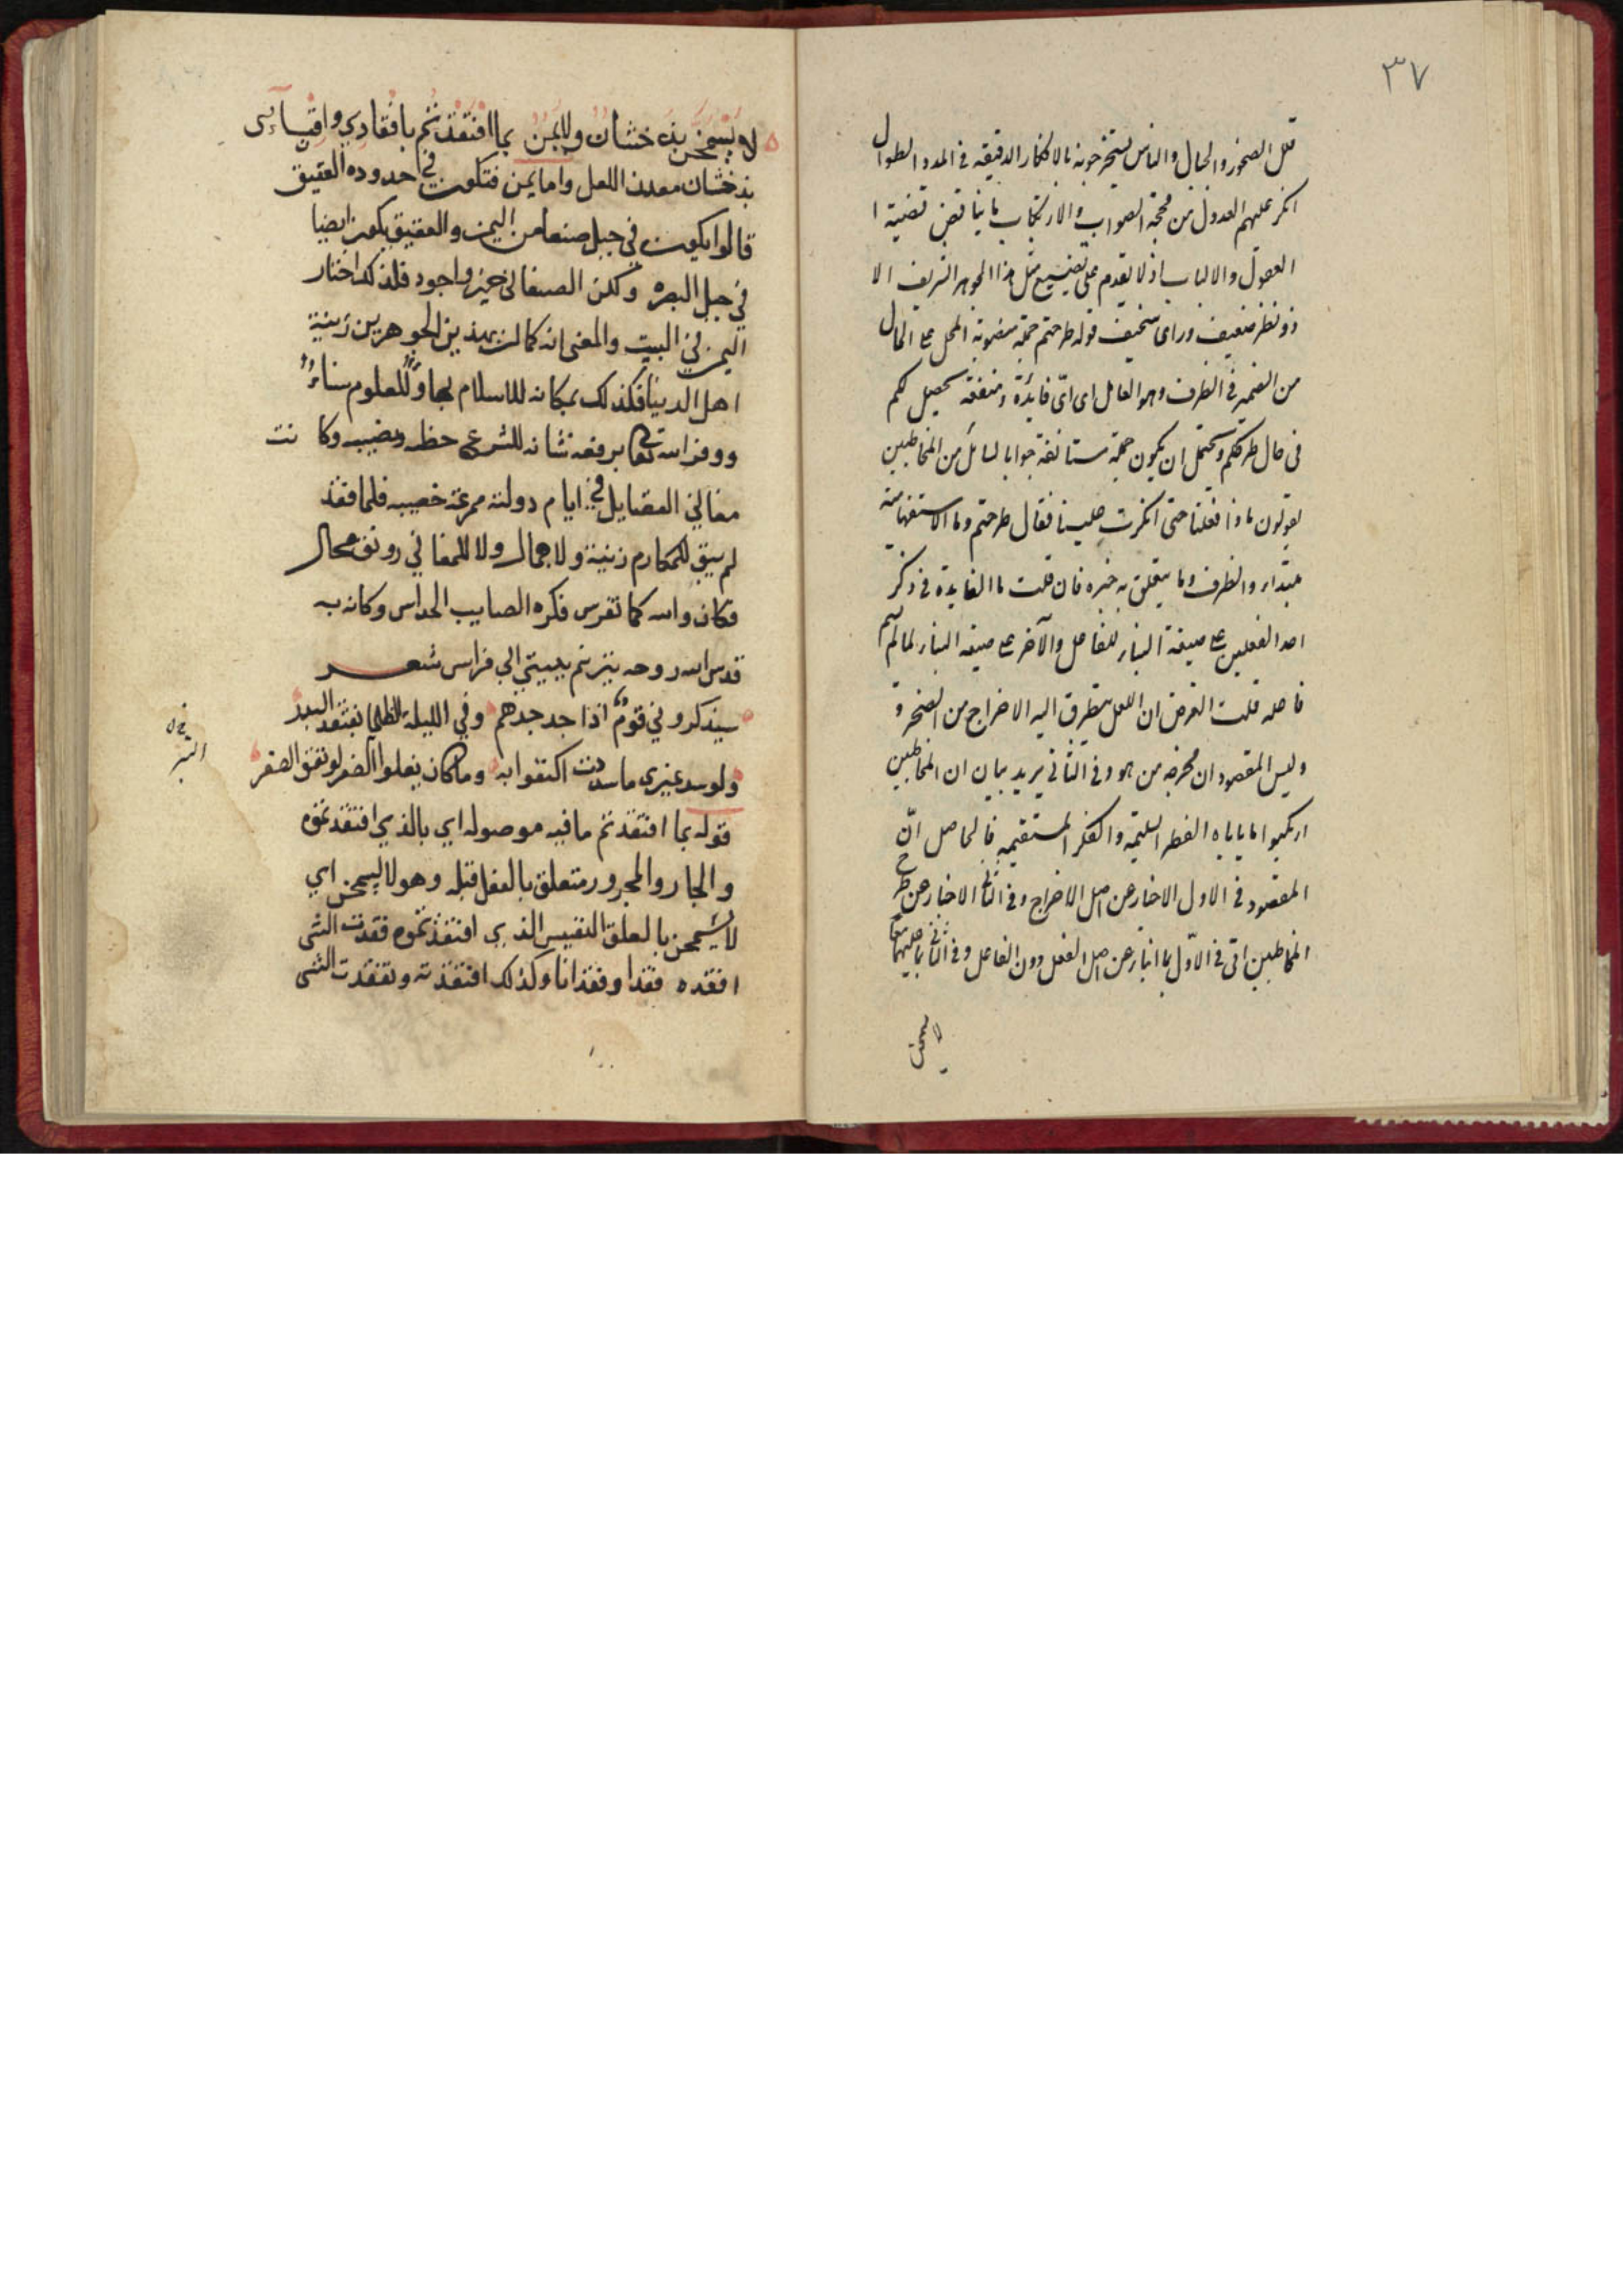 ٣٧
قلل الصخور والجبال والناس يستخرجونه بالافكار الدقيقه في المدد الطوال
انكر عليهم العدول من محجة الصواب والارتكاب بما يناقض قضية ا
العقول والالباب اذ لا يقدم على تضييع مثل هذا الجوهر الشريف الا
ذو نظر ضعيف وراى سخيف قوله طرحتم جملة منصوبة المحل على الحال
من الضمير في الظرف وهو العامل اى اىّ فايدة ومنفعة تحصيل لكم
في حال طرحكم ويحتمل ان يكون جملة مستانفة جوابا لسائل من المخاطبين
يقولون ماذا فعلنا حتى انكرت علينا فقال طرحتم وما الاستفهامية
مبتداء والظرف وما يتعلق به خبره فان قلت ما الفايدة في ذكر
احد الفعلين على صيغة البناء للفاعل والآخر على صيغة البناء لما لم يسم
فاعله قلت الغرض ان اللعل يتطرق اليه الاخراج من الصخر و
وليس المقصود ان مخرجه من هو وفي الثاني يريد بيان ان المخاطبين
ارتكبوا ما ياباه الفطر السليمة والفكر المستقيمه فالحاصل انّ
المقصود في الاول الاخبار عن اصل الاخراج وفي الثاني الاخبار عن طرح
المخاطبين اتى في الاوّل بما انبار عن اصل الفعل دون الفاعل وفي الثاني
لا يسمحن
لا يسمحن بذخشان ولا يمن بما افتقدتم بافقادي وافتيائى
بذخشان معدن اللعل واما يمن فتكون في حدوده العقيق
قالوا يكون في جبل صنعا من اليمن والعقيق يكون ايضا
في جبل البصره ولكن الصنعانى خير واجود فلذلك اختار
اليمن في البيت والمعنى انه كما ان بهذين الجوهرين زينة
اهل الدينا فكذلك بمكانه للاسلام بهاء وللعلوم سناء
ووفر الله تعالى برفعه شانه للشرع حظه ونصيبه وكانت
مغاني الفضايل في ايام دولته مرغة خصيبه فلما فقد
لم يبق للمكارم زينة ولا جمال ولا للمغاني رونق محال
فكان والله كما تفرس فكره الصايب الحداس وكانه به
قدس الله روحه يترنم ببيتي ابي فراس شعر
سيذكروني قومي اذا جد جدهم وفي الليلة الظلما يفتقد البدر
ولو سد غيري ما سددت اكتفوا به وما كان يغلوا الضفر لو نفق الصفر
قوله بما افتقدتم ما فيه موصوله اي بالذي افتقدتموه
والجار والمجرور متعلق بالفعل قبله وهو لا يسمحن اي
لا يسمحن بالعلق النفيس الذي افتقدتموه فقدت الشى
افقده فقدا وفقدانا وكذلك افتقدته وتفقدت الشى
التبر